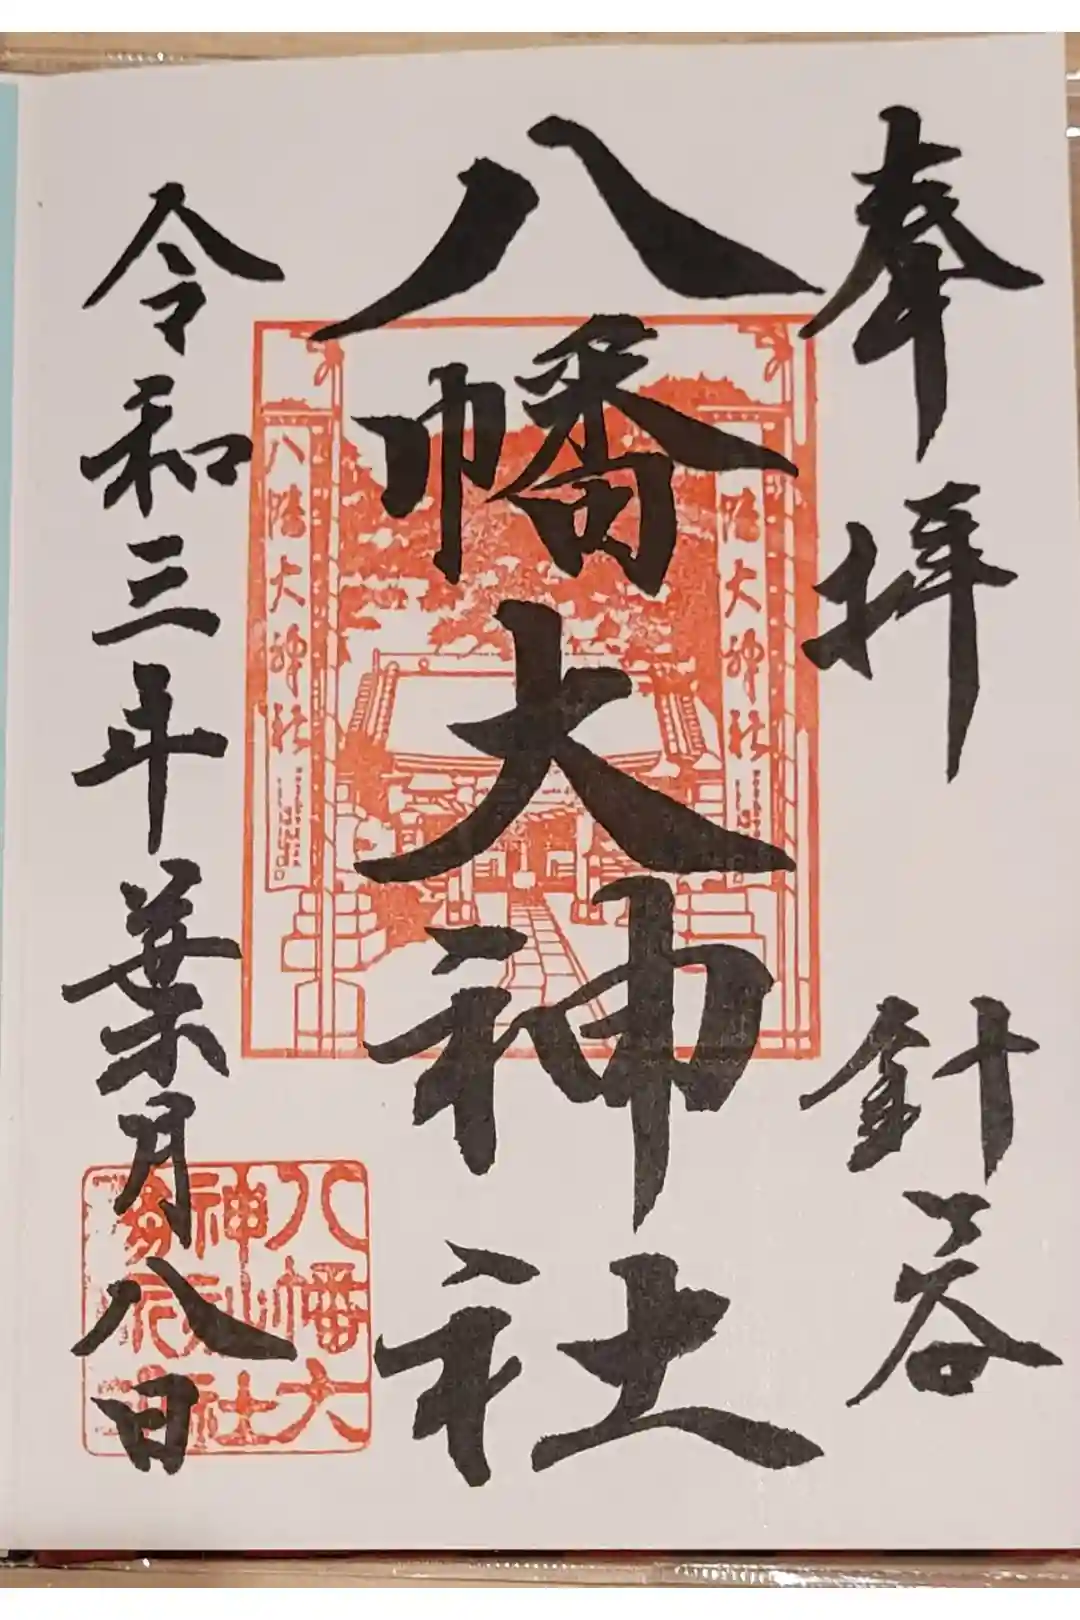 奉拝
針ヶ谷
八幡大神社
八幡大神社
八幡大神社
令和三年葉月八日
八幡大
神
社